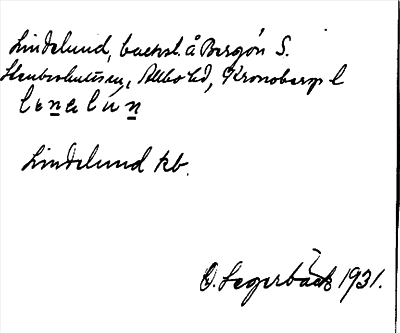 Lindelund, backst. å Bergön S.
Stenbrohultssn, Allbo hd, Kronobergs l
lɩn̲ɑlún̲
Lindelund kb.
O. Segerbäck 1931.